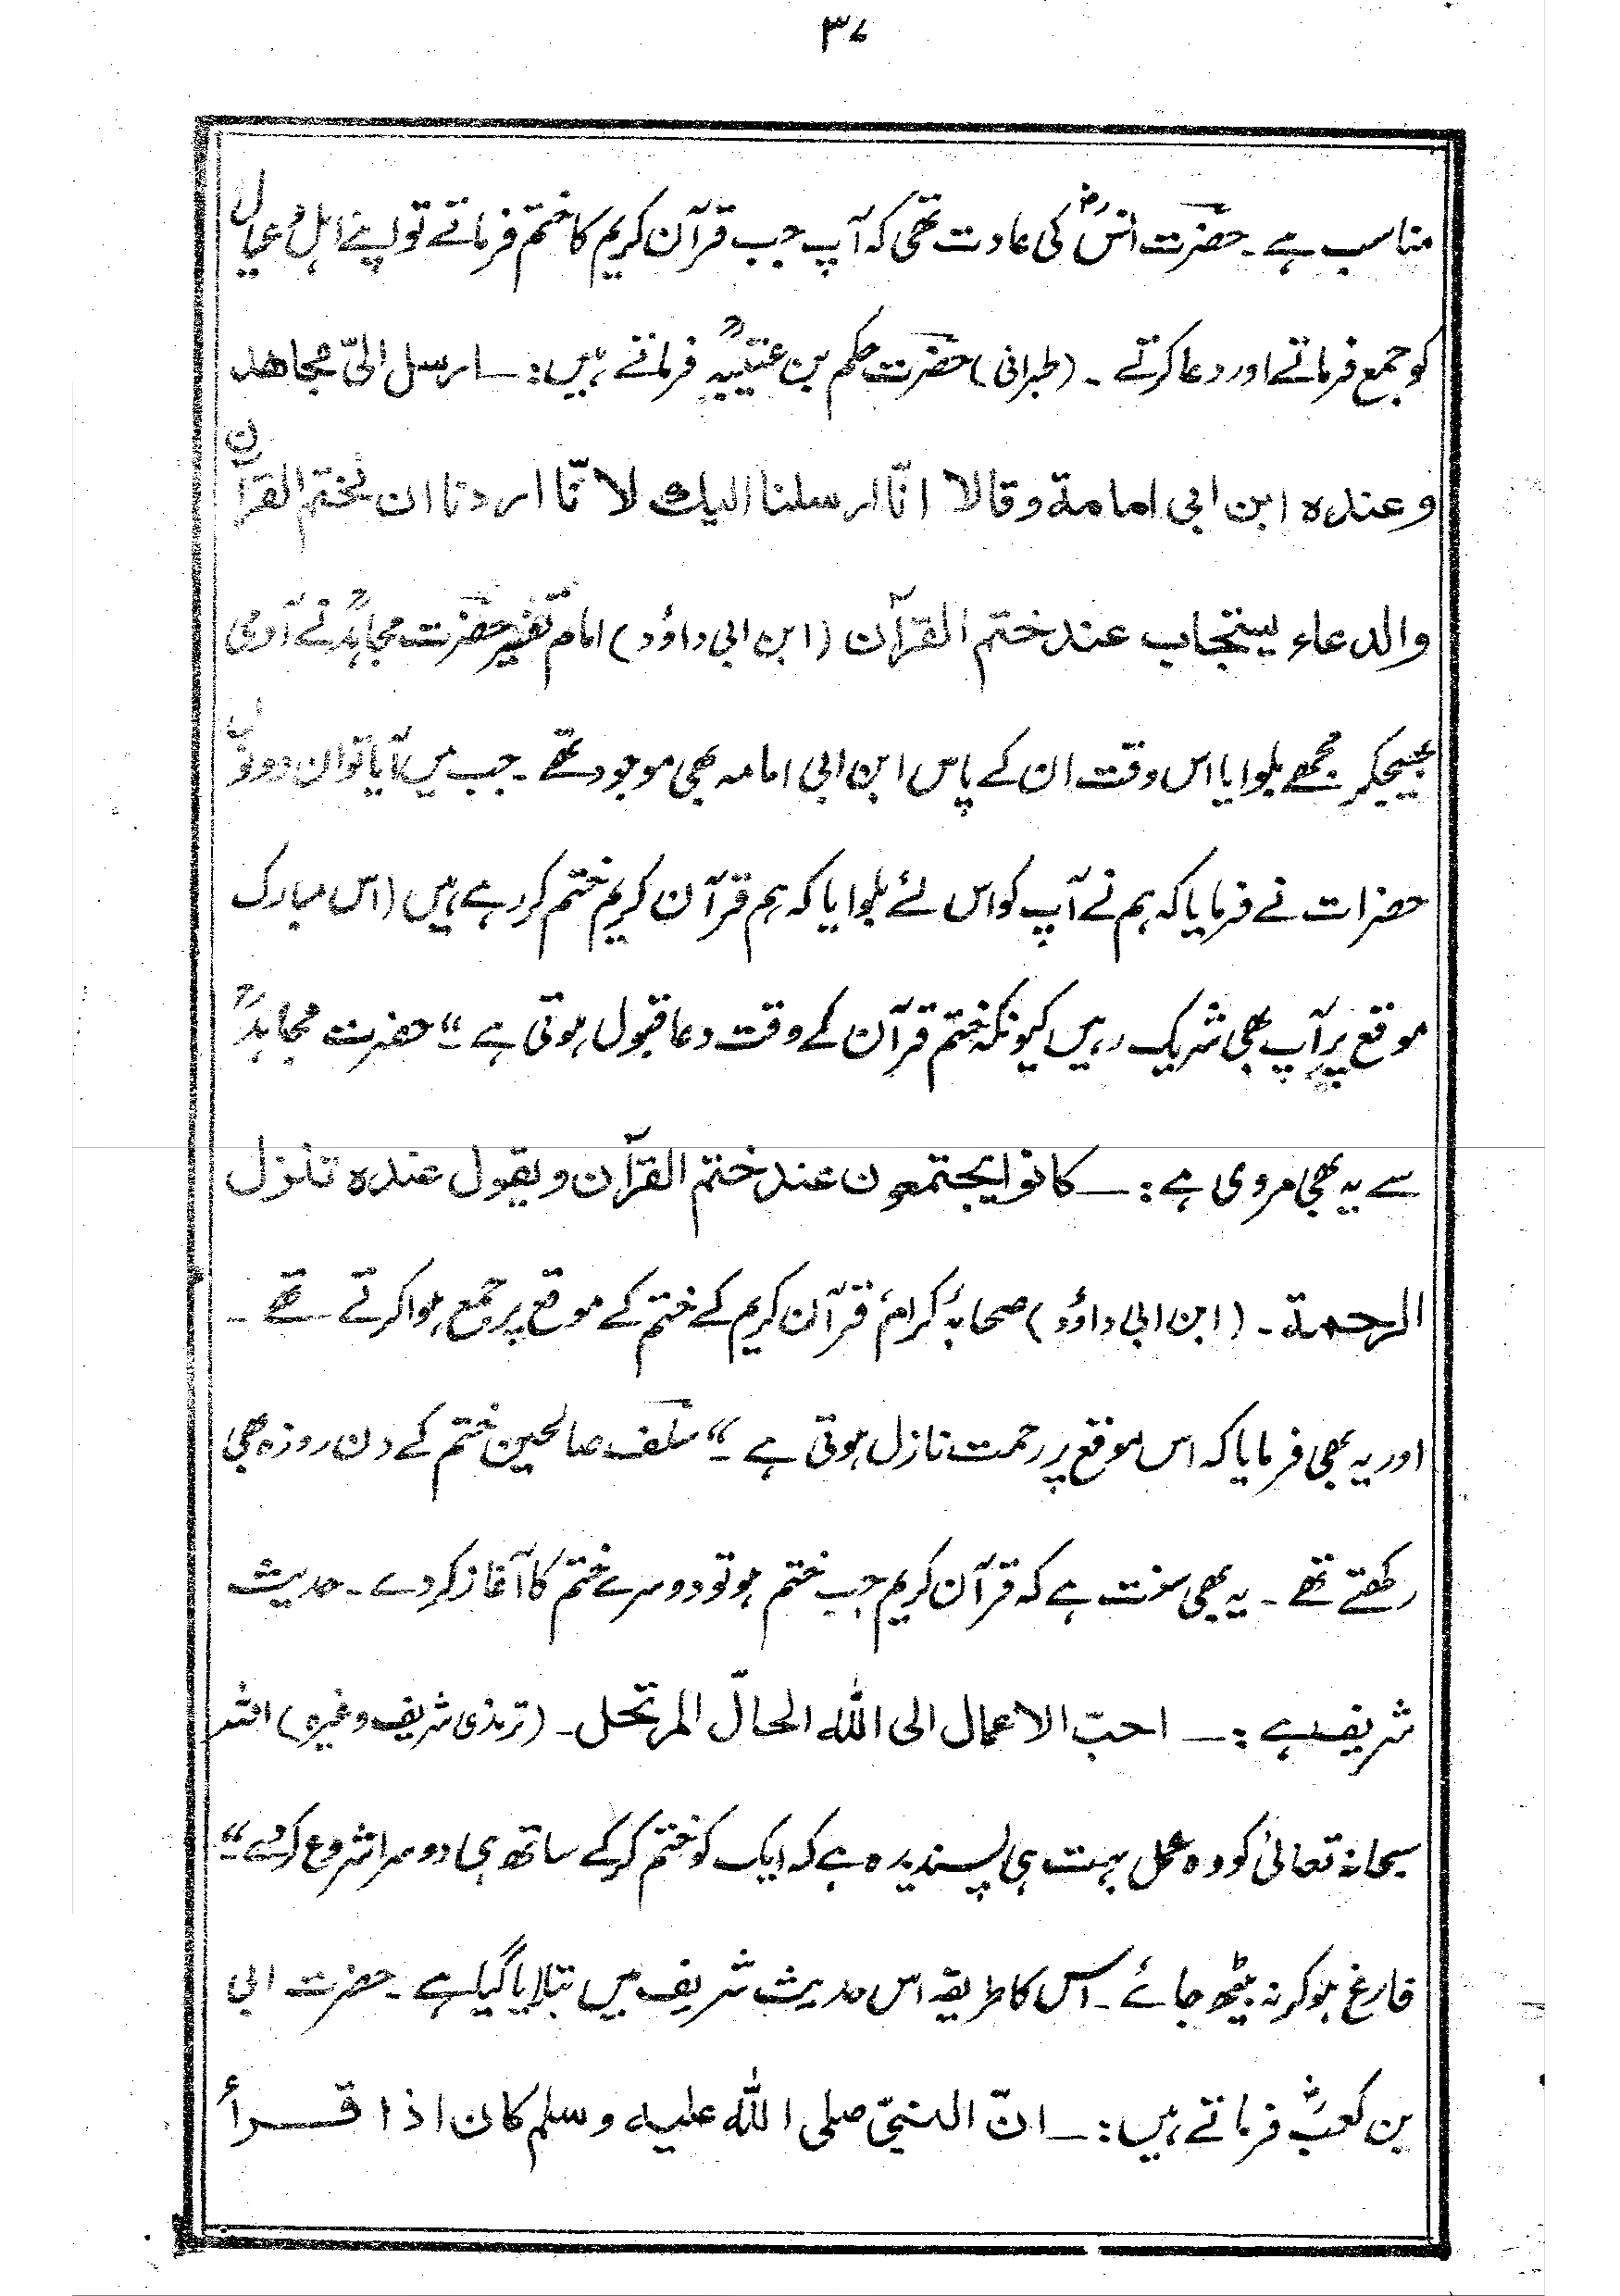 ۳۷
مناسب ہے۔ حضرت انسؓ کی عادت تھی کہ آپ جب قرآن کریم کا ختم فرماتے تو اپنے اہل و عیال
کو جمع فرماتے اور دعا کرتے ۔ (طبرانی) حضرت حکم بن عتیبہؒ فرماتے ہیں :ــ ارسل الیّ مجاھد
و عندہ ابن ابی امامة و قالا انّا ارسلنا الیك لانّا اردنا ان نختم القرآن
والدعاء یستجاب عند ختم القرآن (ابن ابی داؤد) امام تفسیر حضرت مجاہدؒ نے آدمی
بھیجکر مجھے بلوایا اس وقت ان کے پاس ابن ابی امامہ بھی موجود تھے ۔ جب میں آیا تو ان دونوں
حضرات نے فرمایا کہ ہم نے آپ کو اس لئے بلوایا کہ ہم قرآن کریم ختم کر رہے ہیں (اس مبارک
موقع پر آپ بھی شریک رہیں کیونکہ ختم قرآن کے وقت دعا قبول ہوتی ہے ۔“ حضرت مجاہدؒ
سے یہ بھی مروی ہے :ــ کانوا یجتمعون عند ختم القرآن و یقول عندہ تنزل
الرحمة ۔ (ابن ابی داؤد) صحابۂ کرامؓ قرآن کریم کے ختم کے موقع پر جمع ہوا کرتے تھے ۔
اور یہ بھی فرمایا کہ اس موقع پر رحمت نازل ہوتی ہے ۔“ سلف صالحین ختم کے دن روزہ بھی
رکھتے تھے ۔ یہ بھی سنت ہے کہ قرآن کریم جب ختم ہو تو دوسرے ختم کا آغاز کر دے ۔ حدیث
شریف ہے :ــ احبّ الاعمال الی اللہ الحالّ المرتحل ۔ (ترمذی شریف وغیرہ) اللہ
سبحانہٗ تعالیٰ کو وہ عمل بہت ہی پسندیدہ ہے کہ ایک کو ختم کر کے ساتھ ہی دوسرا شروع کر دے ۔“
فارغ ہو کر نہ بیٹھ جائے ۔ اس کا طریقہ اس حدیث شریف میں بتلایا گیا ہے ۔ حضرت ابی
بن کعبؓ فرماتے ہیں :ــ انّ النبیّ صلی اللہ علیہ وسلم کان اذا قرأ